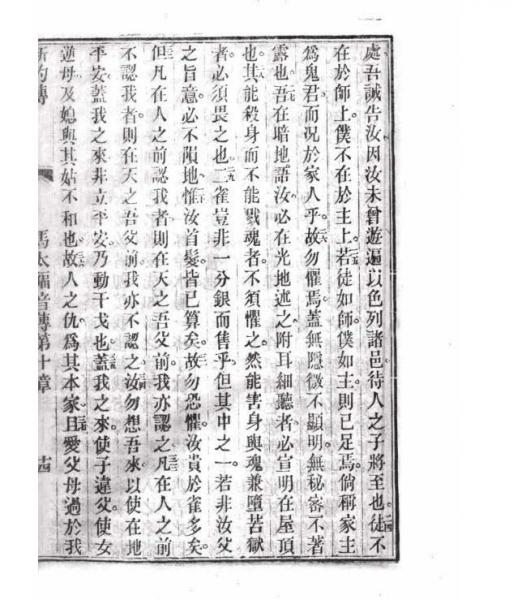 處吾誠告汝因汝未曾遊遍以色列諸邑待人之子將至也徒不
在於師上。僕不在於主上。若徒如師。僕如主。則已足焉。倘稱家主
爲鬼君而況於家人乎。故勿懼焉。蓋無隱微不顯明。無秘密不著
露也。吾在暗地語汝。必在光地述之。附耳細聽者。必宣明在屋頂
也。其能殺身而不能戮魂者。不須懼之。然能害身與魂兼墮苦獄
者必須畏之也。二雀豈非一分銀而售乎。但其中之一。若非汝父
之旨意。必不隕地。惟汝首髮。皆已算矣。故勿恐懼。汝貴於雀多矣。
但凡在人之前認我者。則在天之吾父前。我亦認之。凡在人之前
不認我者。則在天之吾父前。我亦不認之。汝勿想吾來。以使在地
平安。蓋我之來。非立平安。乃動干戈也。蓋我之來。使子違父。使女
逆母及媳與其姑不和也。故人之仇。爲其本家。且愛父母過於我
馬太福音傳第十章